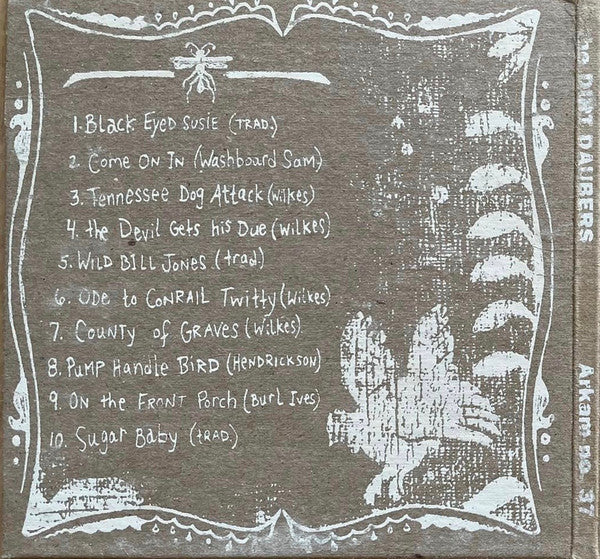 1. Black Eyed Susie (TRAD.)
2. Come ON IN (Washboard Sam)
3. Tennessee Dog Attack (Wilkes)
4. the Devil Gets his Due (Wilkes)
5. WILD BILL JONES (trad.)
6. ODE to CONRAIL Twitty (Wilkes)
7. COUNTY of GRAVES (Wilkes)
8. PUMP HANDLE BIRD (HENDRICKSON)
9. ON the FRONT PORCH (Burl Ives)
10. Sugar Baby (tRAD.)
DIRT DAUBERS
Arkam no. 37